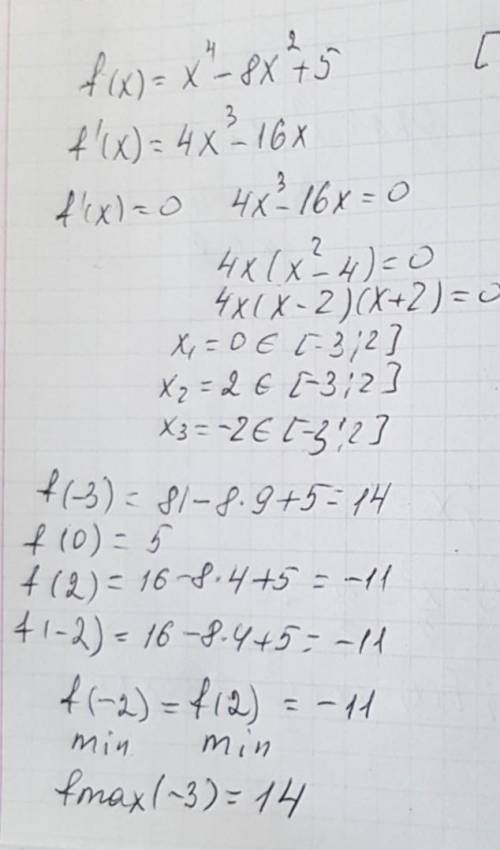 f(x) = x⁴ - 8x² + 5 [
f'(x) = 4x³ - 16x
f'(x) = 0 4x³ - 16x = 0
4x(x² - 4) = 0
4x(x - 2)(x + 2) = 0
x₁ = 0 ∈ [-3; 2]
x₂ = 2 ∈ [-3; 2]
x₃ = -2 ∈ [-3; 2]
f(-3) = 81 - 8·9 + 5 = 14
f(0) = 5
f(2) = 16 - 8·4 + 5 = -11
f(-2) = 16 - 8·4 + 5 = -11
f(-2) = f(2) = -11
min min
fmax(-3) = 14